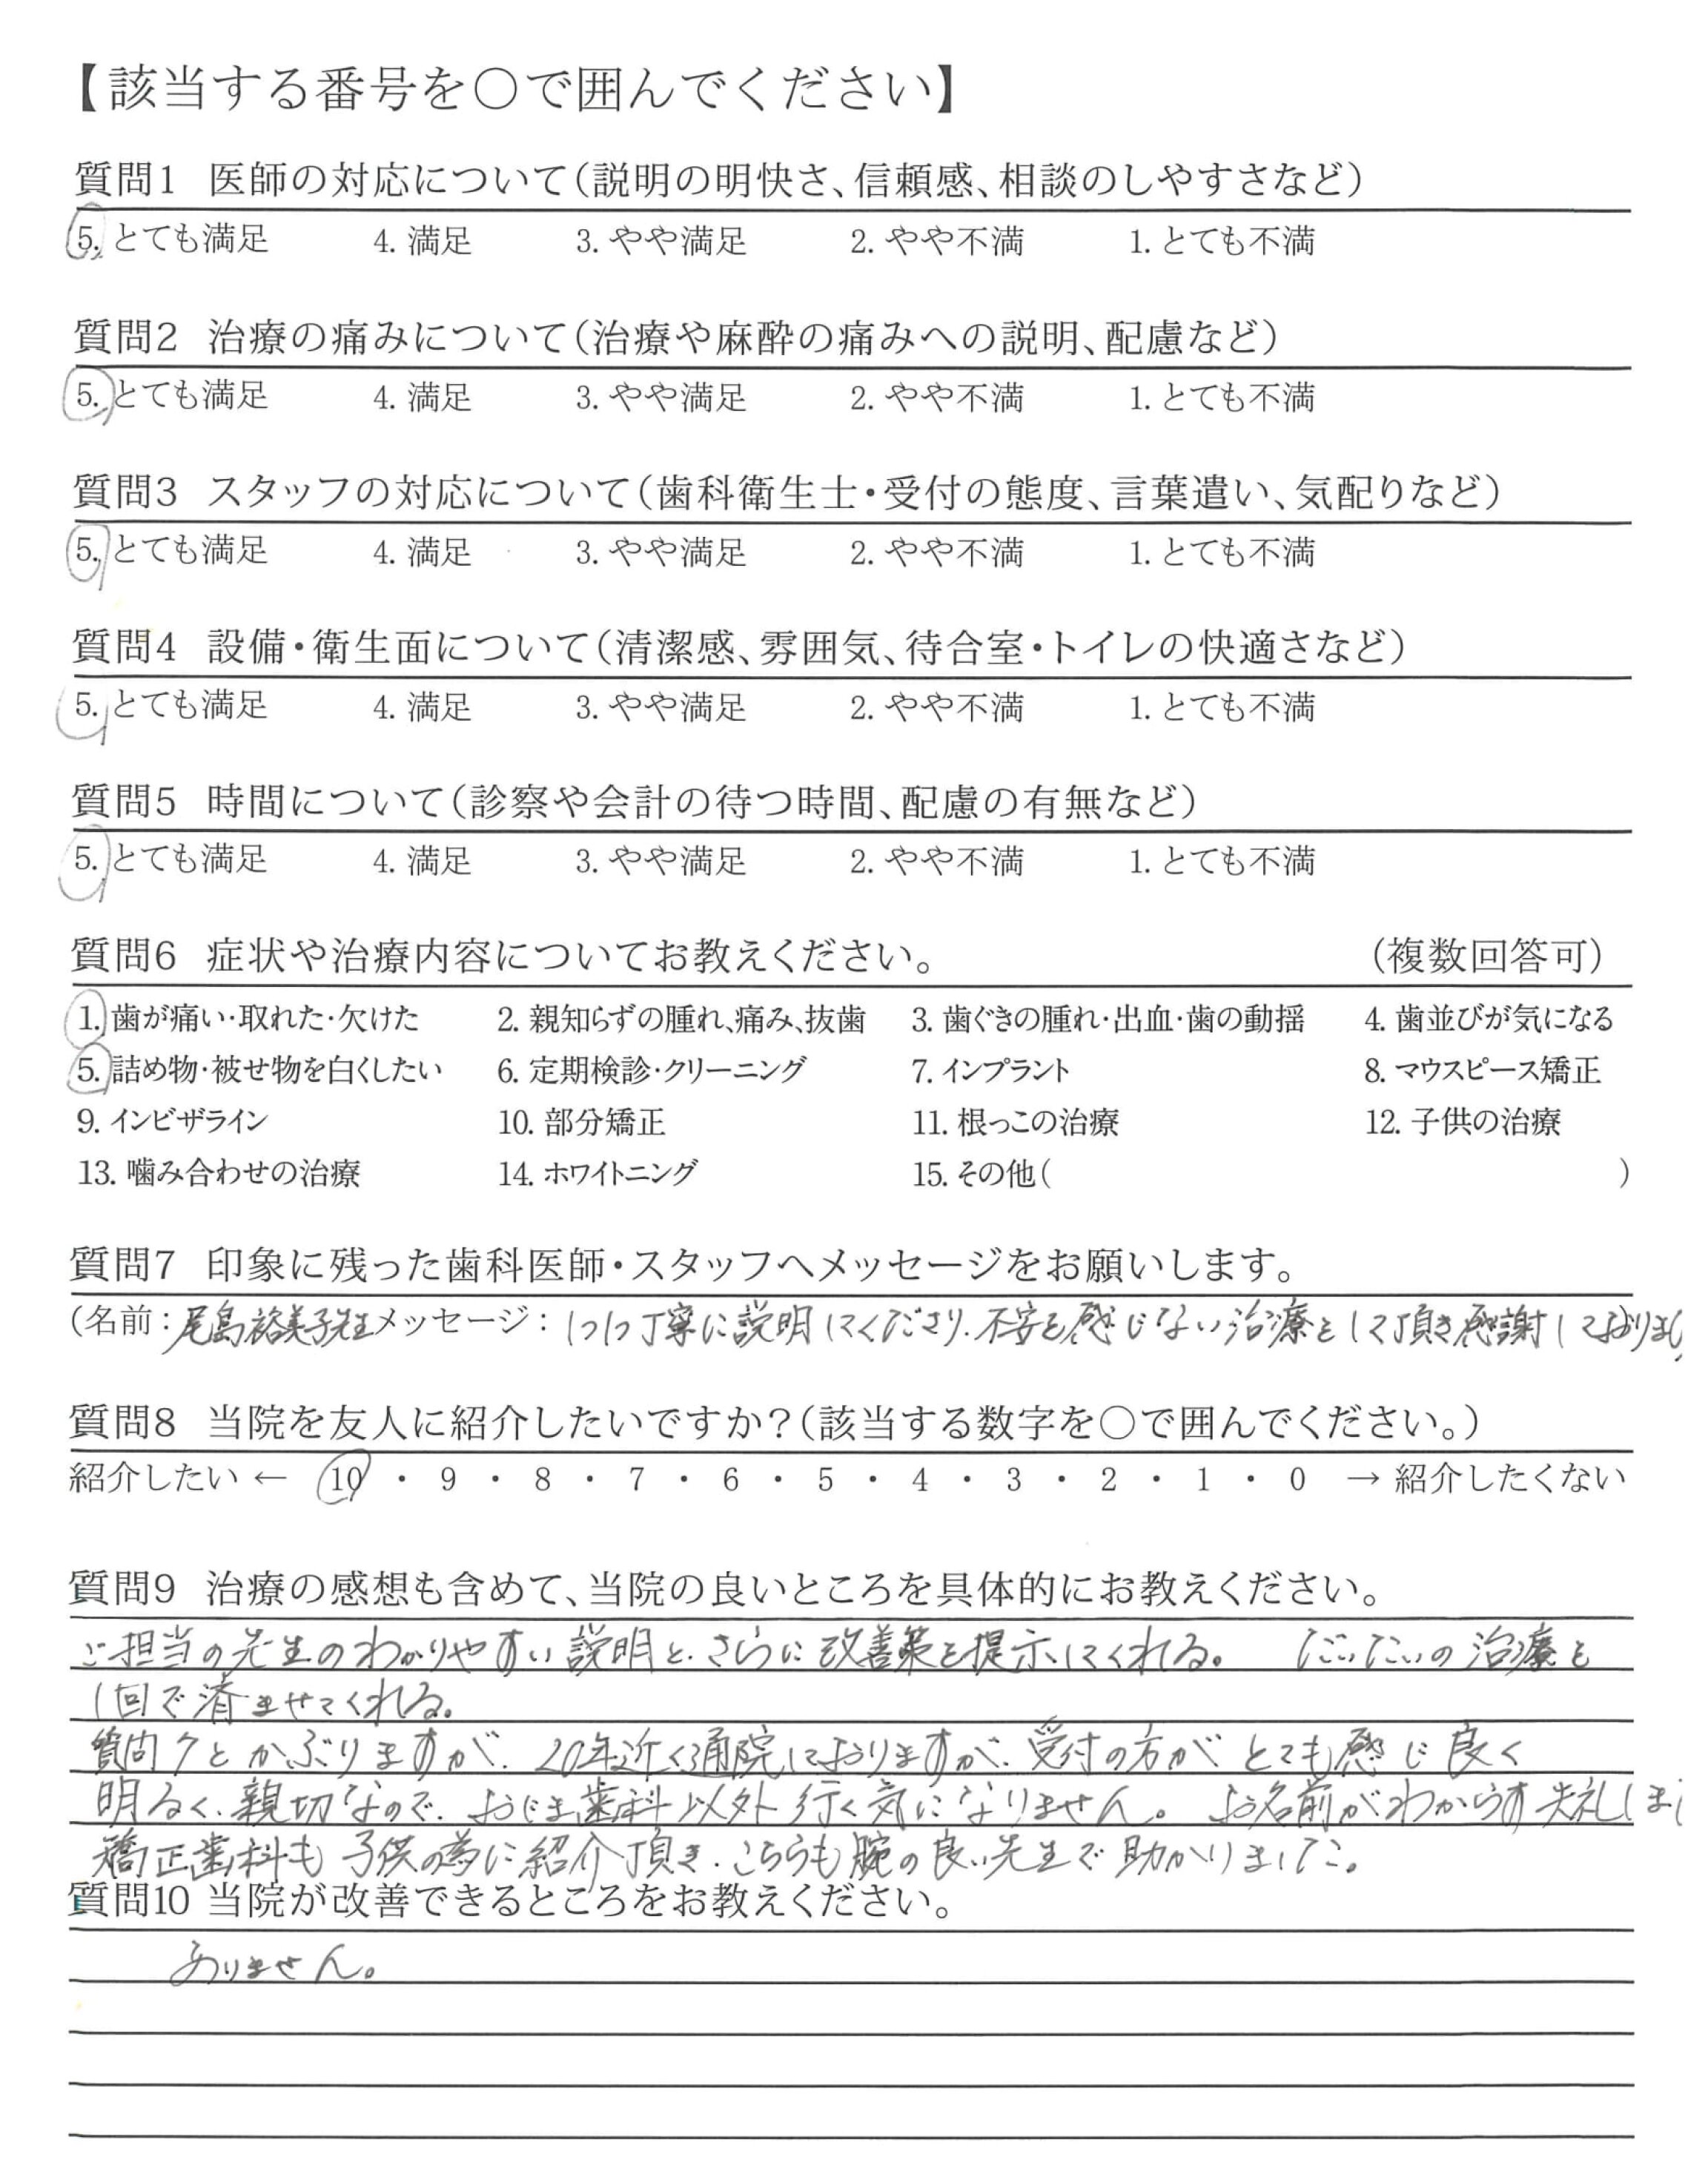 【該当する番号を○で囲んでください】
質問1 医師の対応について(説明の明快さ、信頼感、相談のしやすさなど)
5. とても満足 4. 満足 3. やや満足 2. やや不満 1. とても不満
質問2 治療の痛みについて(治療や麻酔の痛みへの説明、配慮など)
5. とても満足 4. 満足 3. やや満足 2. やや不満 1. とても不満
質問3 スタッフの対応について(歯科衛生士・受付の態度、言葉遣い、気配りなど)
5. とても満足 4. 満足 3. やや満足 2. やや不満 1. とても不満
質問4 設備・衛生面について(清潔感、雰囲気、待合室・トイレの快適さなど)
5. とても満足 4. 満足 3. やや満足 2. やや不満 1. とても不満
質問5 時間について(診察や会計の待つ時間、配慮の有無など)
5. とても満足 4. 満足 3. やや満足 2. やや不満 1. とても不満
質問6 症状や治療内容についてお教えください。 (複数回答可)
1. 歯が痛い・取れた・欠けた 2. 親知らずの腫れ、痛み、抜歯 3. 歯ぐきの腫れ・出血・歯の動揺 4. 歯並びが気になる
5. 詰め物・被せ物を白くしたい 6. 定期検診・クリーニング 7. インプラント 8. マウスピース矯正
9. インビザライン 10. 部分矯正 11. 根っこの治療 12. 子供の治療
13. 噛み合わせの治療 14. ホワイトニング 15. その他( )
質問7 印象に残った歯科医師・スタッフへメッセージをお願いします。
(名前：尾島裕美子先生 メッセージ：1つ1つ丁寧に説明してくださり、不安を感じない治療をして頂き感謝しております
質問8 当院を友人に紹介したいですか？(該当する数字を○で囲んでください。)
紹介したい ← 10 ・ 9 ・ 8 ・ 7 ・ 6 ・ 5 ・ 4 ・ 3 ・ 2 ・ 1 ・ 0 → 紹介したくない
質問9 治療の感想も含めて、当院の良いところを具体的にお教えください。
ご担当の先生のわかりやすい説明と、さらに改善策を提示してくれる。 だいたいの治療を
1回で済ませてくれる。
質問7とかぶりますが、20年近く通院しておりますが、受付の方がとても感じ良く
明るく、親切なので、おじま歯科以外行く気になりません。 お名前がわからず失礼しまし
矯正歯科も子供の為に紹介頂き、こちらも腕の良い先生で助かりました。
質問10 当院が改善できるところをお教えください。
ありません。